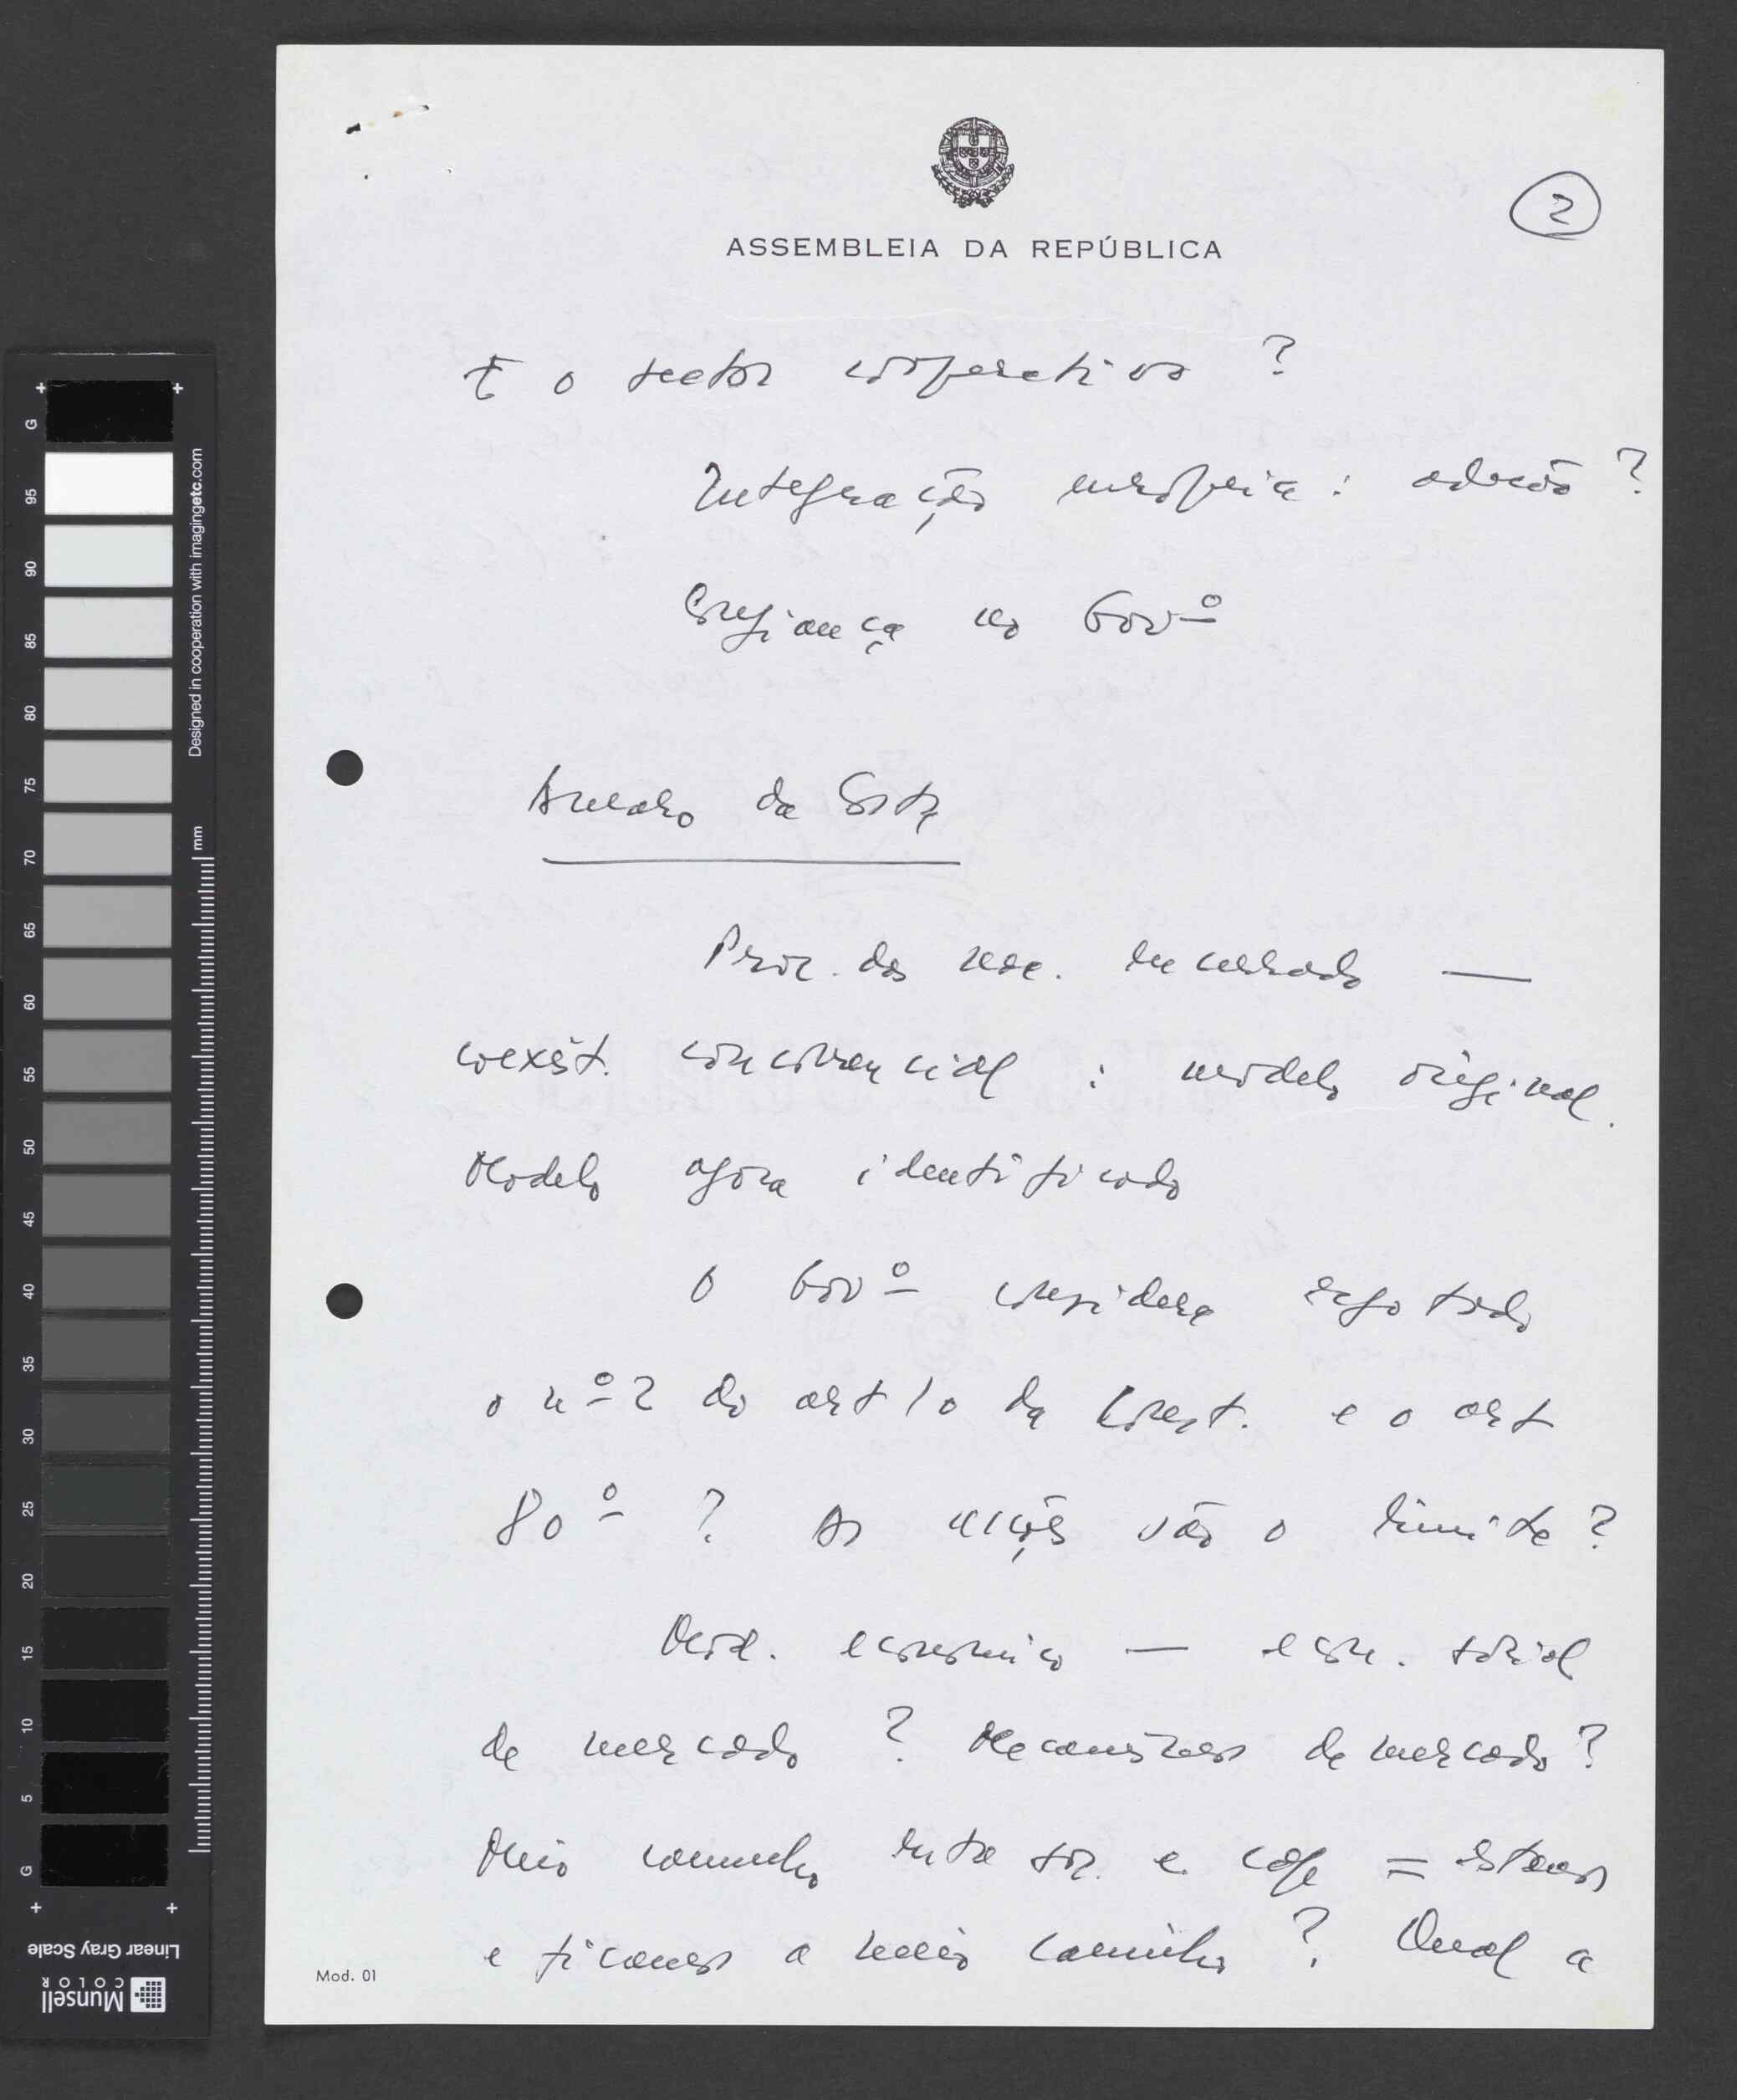 2
ASSEMBLEIA DA REPÚBLICA
E o sector cooperativo ?
Integração europeia : adesão ?
Confiança no Govº
Amaro da Costa
Proc. das nac. encerrado —
coexist. concorrencial : modelo original.
Modelo agora identificado
O Govº considera esgotado
o nº 2 do art 10 da Const. e o art
80º ? As são o limite ?
Mod. económico — econ. social
de mercado ? Mecanismos de mercado ?
Meio caminho entre soc. e cap = estamos
e ficamos a meio caminho ? Qual a
Mod. 01
Designed in cooperation with imagingetc.com
mm
G 95 90 85 80 75 70 65 60 55 50 45 40 35 30 25 20 15 10 5 G
Linear Gray Scale
Munsell
COLOR